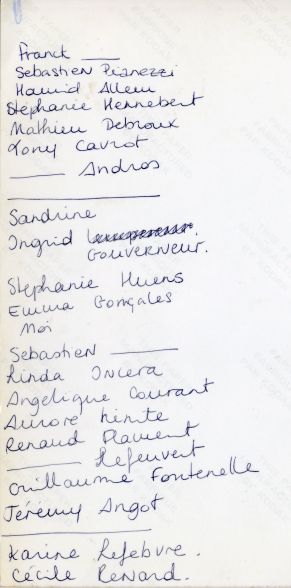 Franck ___
Sebastien Pianezzi
Hamid Allem
Stéphanie Hennebert
Mathieu Debroux
Tony Cavrot
___ Andros
___
Sandrine
Ingrid
Gouverneur.
Stephanie Huens
Emma Gonçales
Moi
Sebastien ___
Linda Inciera
Angélique Courant
Aurore
Renaud Plauent
___ Lefeuvert
Guillaume Fontenelle
Jérémy Angot
___
Karine Lefebvre.
Cécile Renard.